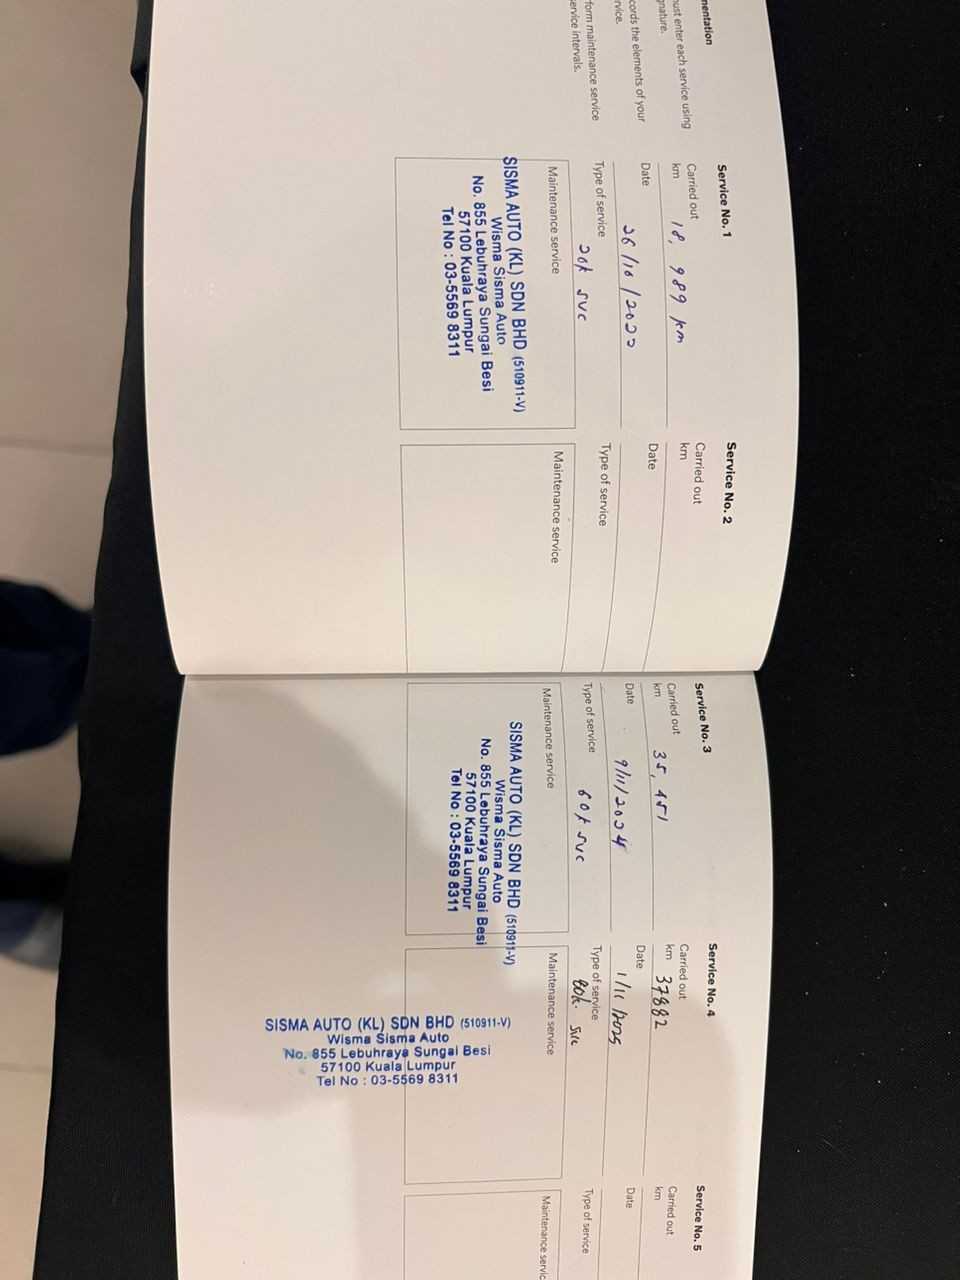 mentation
must enter each service using
gnature.
cords the elements of your
rvice.
form maintenance service
service intervals.
Service No. 1
Carried out
km 18, 989 km
Date 26/10/2022
Type of service 20k svc
Maintenance service
SISMA AUTO (KL) SDN BHD (510911-V)
Wisma Sisma Auto
No. 855 Lebuhraya Sungai Besi
57100 Kuala Lumpur
Tel No : 03-5569 8311
Service No. 2
Carried out
km
Date
Type of service
Maintenance service
Service No. 3
Carried out
km 35, 451
Date 9/11/2024
Type of service 60k svc
Maintenance service
SISMA AUTO (KL) SDN BHD (510911-V)
Wisma Sisma Auto
No. 855 Lebuhraya Sungai Besi
57100 Kuala Lumpur
Tel No : 03-5569 8311
Service No. 4
Carried out
km 37882
Date 1/11/2025
Type of service 80k. svc
Maintenance service
SISMA AUTO (KL) SDN BHD (510911-V)
Wisma Sisma Auto
No. 855 Lebuhraya Sungai Besi
57100 Kuala Lumpur
Tel No : 03-5569 8311
Service No. 5
Carried out
km
Date
Type of service
Maintenance servic